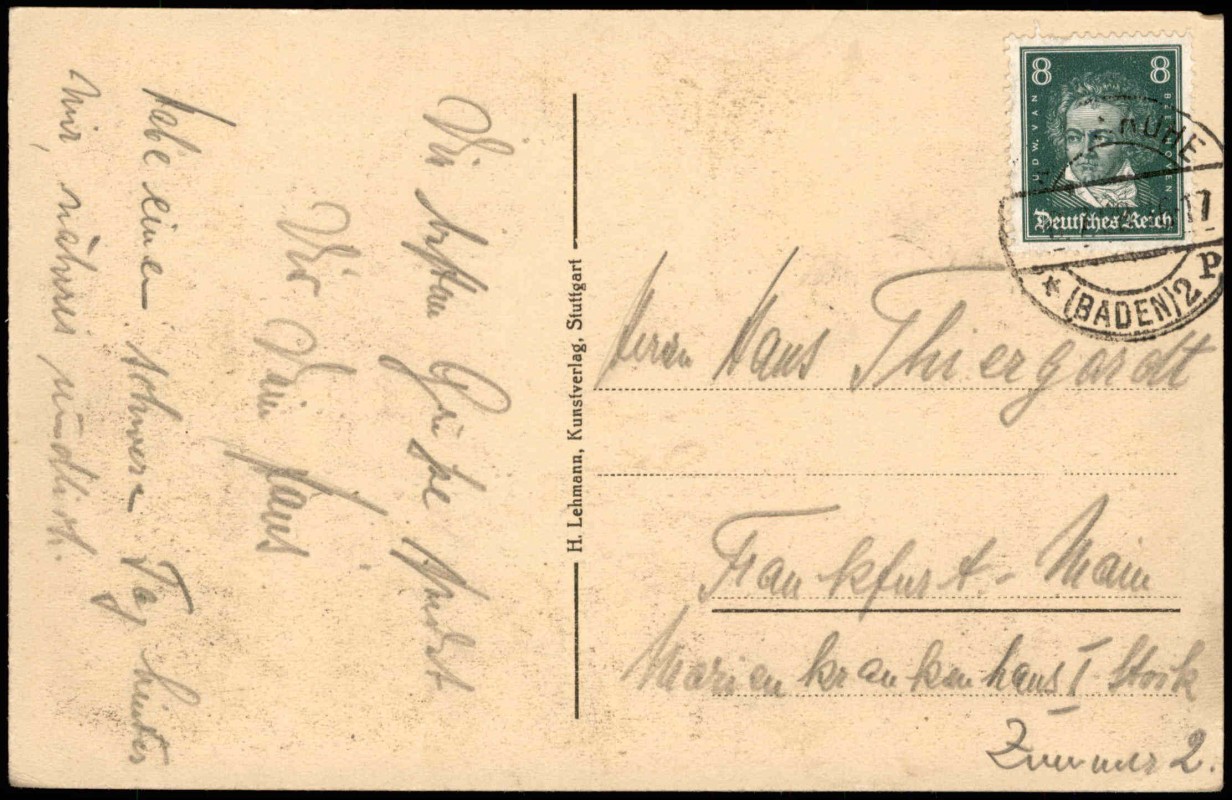 Die besten Grüße sendet
Dir Dein Hans
habe einen schweren Tag hinter
mir, näheres mündlich.
H. Lehmann, Kunstverlag, Stuttgart
8 8
LUDW. VAN BEETHOVEN
Deutsches Reich
RUHE
17
* (BADEN) 2 P
Herrn Hans Thiergardt
Frankfurt-Main
Marienkrankenhaus I. Stock
Zimmer 2.